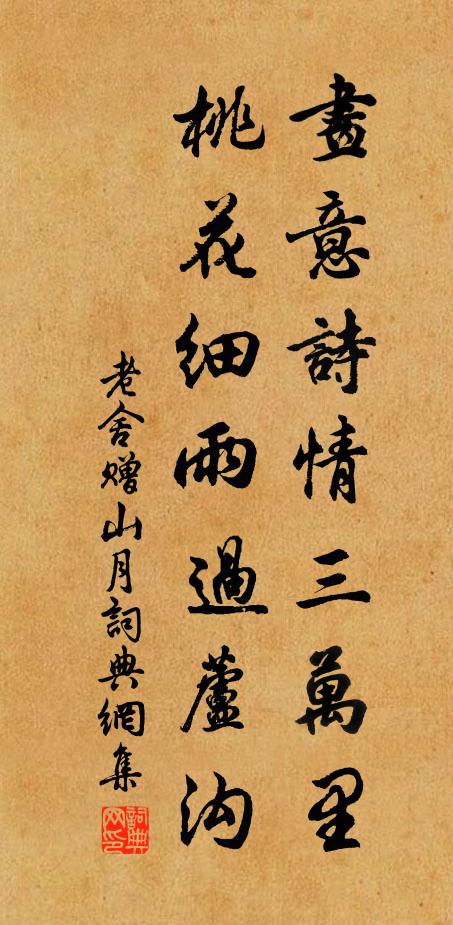 畫意詩情三萬里
桃花細雨過蘆沟
老舍赠山月詞典網集
詞典网印